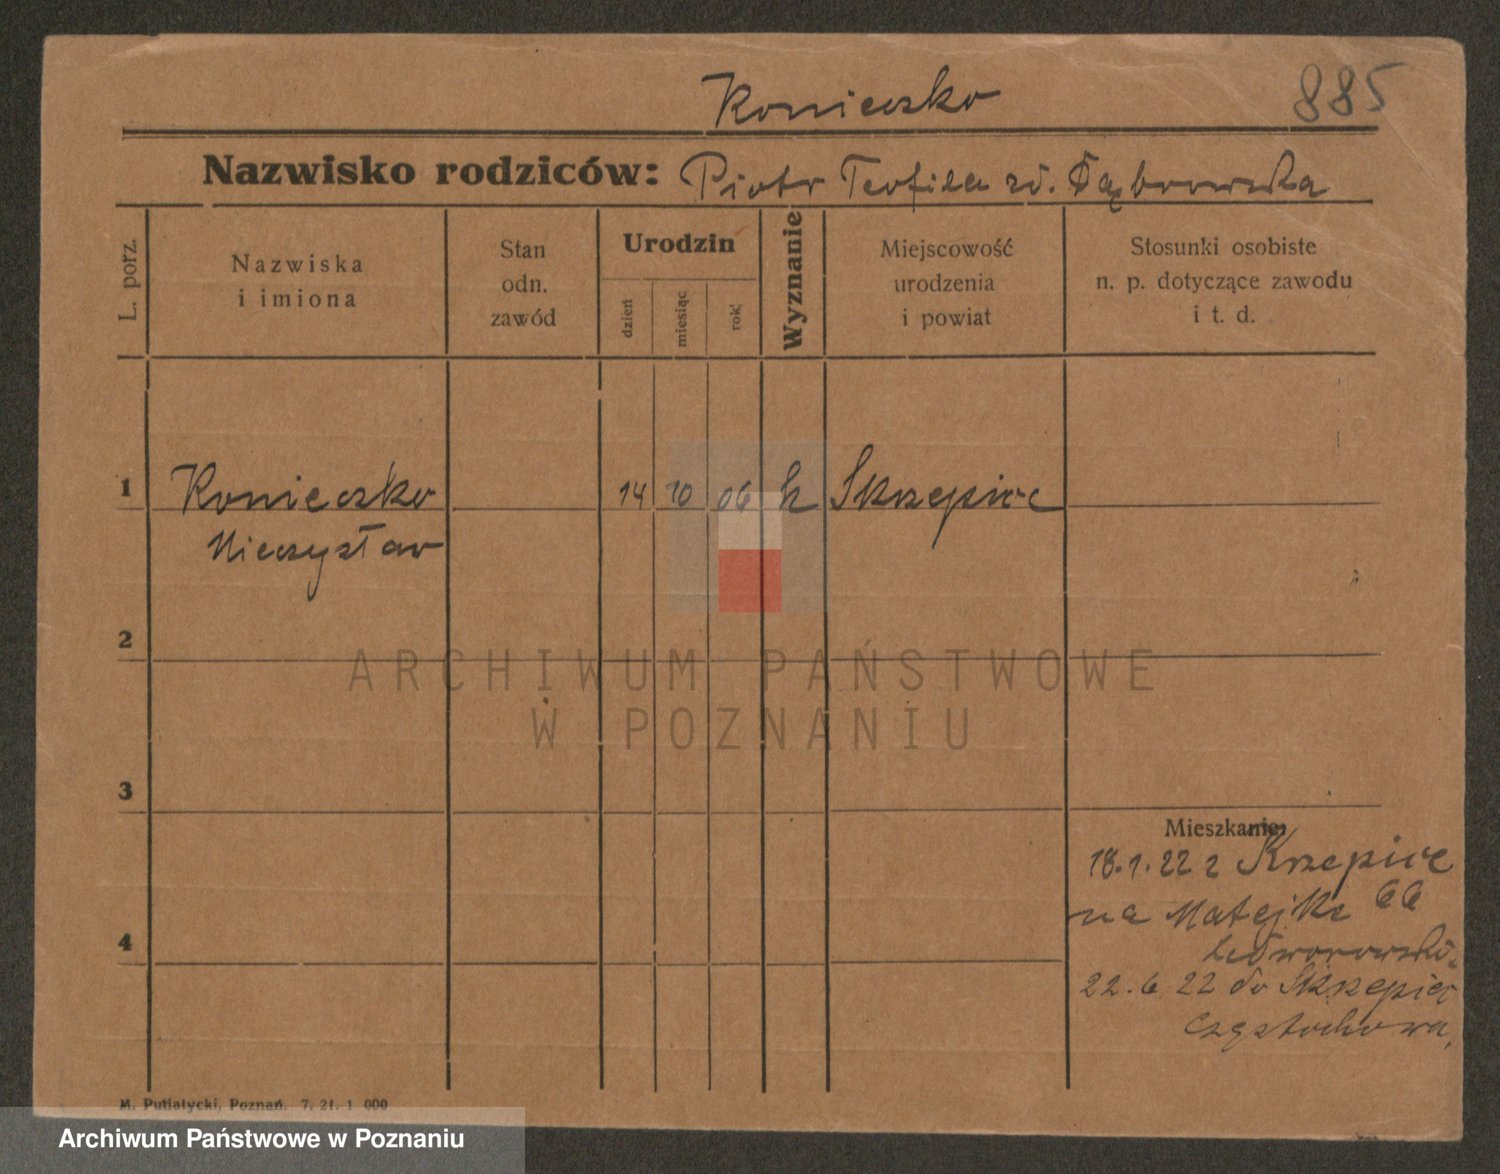 Konieczko
885
Nazwisko rodziców: Piotr Teofila zd. Dąbrowska
L. porz.
Nazwiska
i imiona
Stan
odn.
zawód
Urodzin
dzień
miesiąc
rok
Wyznanie
Miejscowość
urodzenia
i powiat
Stosunki osobiste
n. p. dotyczące zawodu
i t. d.
1
Konieczko
Mieczysław
14 10 06 k Skrzepice
2
ARCHIWUM PAŃSTWOWE
W POZNANIU
3
Mieszkanie:
18.1.22 z Krzepice
na Matejki 66
4
22.6.22 do Skrzepice
Częstochowa
M. Putiatycki, Poznań. 7. 21. 1 000
Archiwum Państwowe w Poznaniu